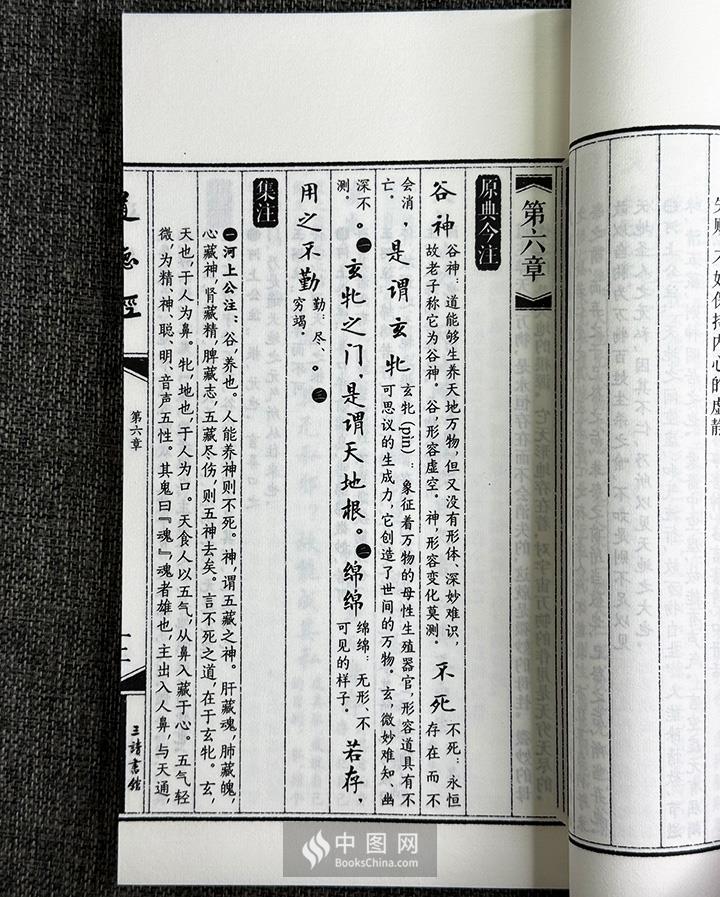 不如保持内心的虚静
第六章
原典今注
谷神
谷神：道能够生养天地万物，但又没有形体、深妙难识，
故老子称它为谷神。谷，形容虚空。神，形容变化莫测。
不死
不死：永恒
存在而不
会消
亡。
，是谓玄牝
玄牝（pìn）：象征着万物的母性生殖器官，形容道具有不
可思议的生成力，它创造了世间的万物。玄，微妙难知、幽
深不
测。
。一玄牝之门，是谓天地根。二绵绵
绵绵：无形、不
可见的样子。
若存，
用之不勤
勤：尽、
穷竭。
。三
集注
一河上公注：谷，养也。人能养神则不死。神，谓五藏之神。肝藏魂，肺藏魄，
心藏神，肾藏精，脾藏志，五藏尽伤，则五神去矣。言不死之道，在于玄牝。玄，
天也，于人为鼻。牝，地也，于人为口。天食人以五气，从鼻入藏于心。五气轻
微，为精、神、聪、明、音声五性。其鬼曰『魂』，魂者雄也，主出入人鼻，与天通，
道德经
第六章
三诗书馆
中图网
BooksChina.com